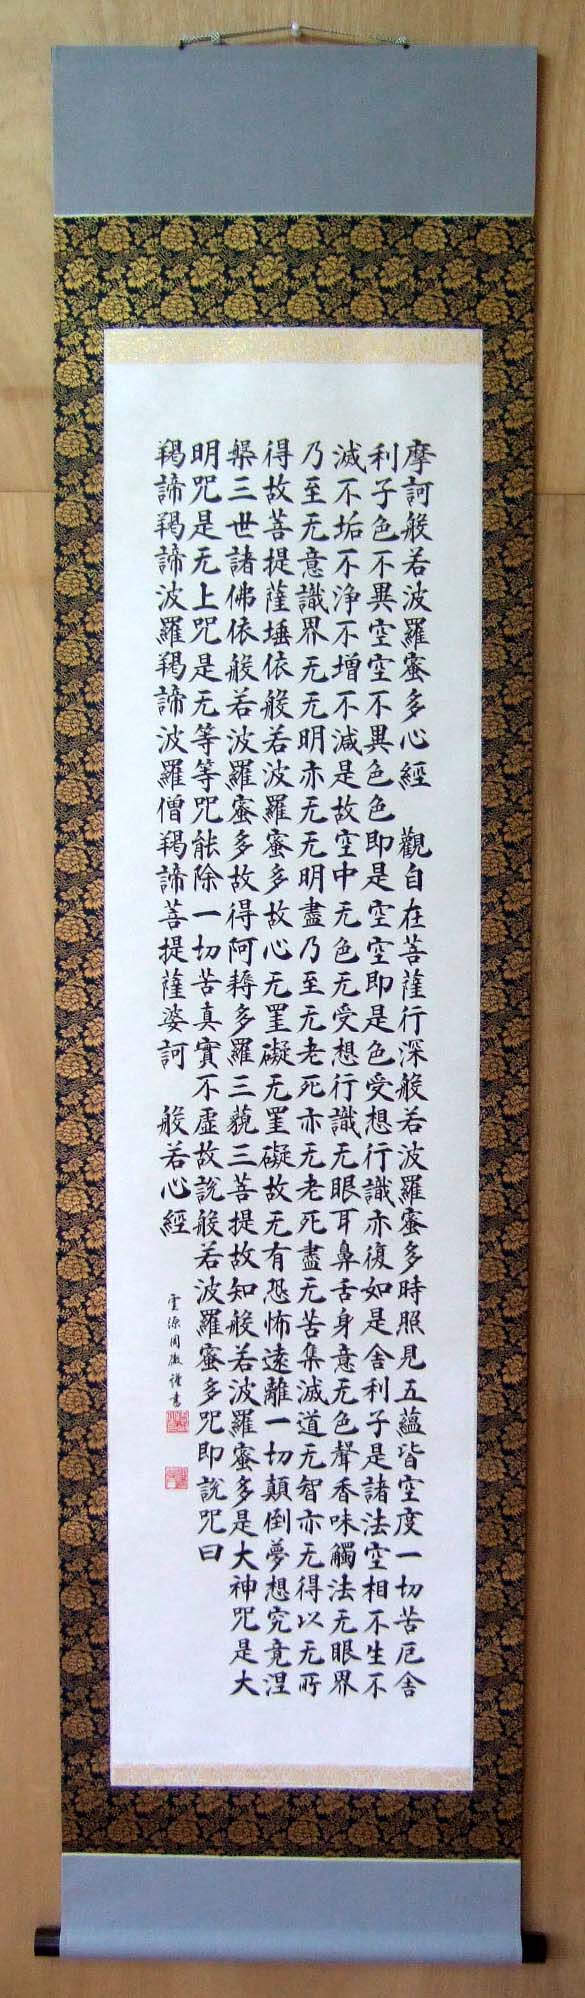 摩訶般若波羅蜜多心經　觀自在菩薩行深般若波羅蜜多時照見五蘊皆空度一切苦厄舎
利子色不異空空不異色色即是空空即是色受想行識亦復如是舎利子是諸法空相不生不
滅不垢不浄不增不減是故空中无色无受想行識无眼耳鼻舌身意无色聲香味觸法无眼界
乃至无意識界无无明亦无无明盡乃至无老死亦无老死盡无苦集滅道无智亦无得以无所
得故菩提薩埵依般若波羅蜜多故心无罣礙无罣礙故无有恐怖遠離一切顛倒夢想究竟涅
槃三世諸佛依般若波羅蜜多故得阿耨多羅三藐三菩提故知般若波羅蜜多是大神咒是大
明咒是无上咒是无等等咒能除一切苦真實不虛故説般若波羅蜜多咒即説咒曰
羯諦羯諦波羅羯諦波羅僧羯諦菩提薩婆訶　般若心經
雲源周徹謹書